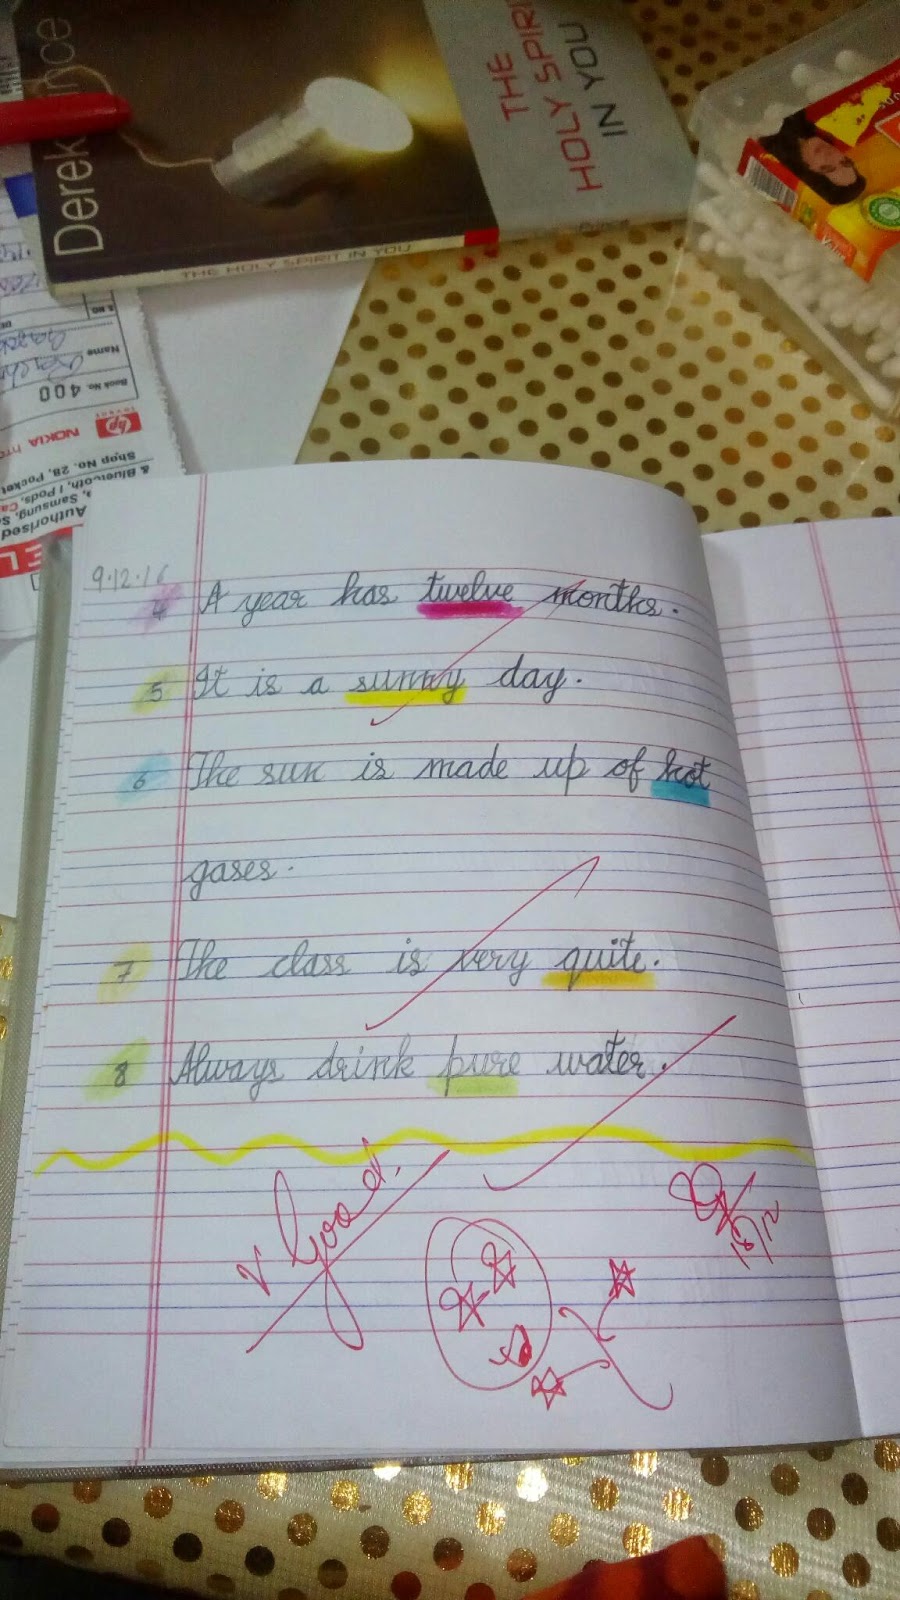 Derek
THE
HOLY SPIRIT
IN YOU
THE HOLY SPIRIT IN YOU
Name
Book No. 400
hp
invent
NOKIA
Shop No. 28, Pocket
& Bluetooth, I Pods,
Samsung,
Authorised
9.12.16
4 A year has twelve months.
5 It is a sunny day.
6 The sun is made up of hot
gases.
7 The class is very quite.
8 Always drink pure water.
V Good.